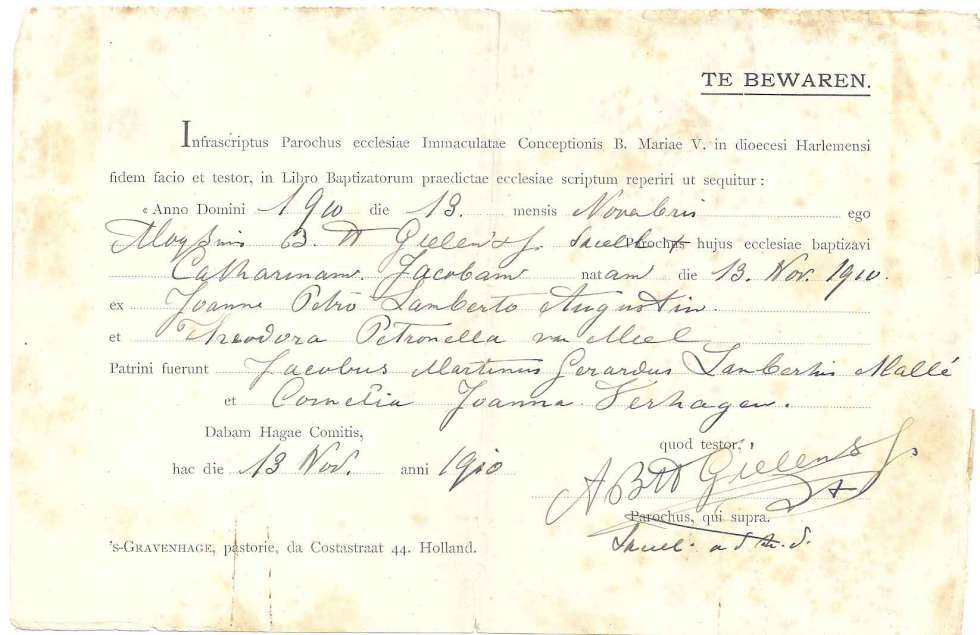 TE BEWAREN.
Infrascriptus Parochus ecclesiae Immaculatae Conceptionis B. Mariae V. in dioecesi Harlemensi
fidem facio et testor, in Libro Baptizatorum praedictae ecclesiae scriptum reperiri ut sequitur :
« Anno Domini 1910 die 13. mensis Novembris ego
Aloysius B. Gielen S.J. Parochus hujus ecclesiae baptizavi
Catharinam Jacobam natam die 13. Nov. 1910.
ex Joanne Petro Lamberto Augustin.
et Theodora Petronella van Meel
Patrini fuerunt Jacobus Martinus Gerardus Lambertus Mallé
et Cornelia Joanna Verhagen.
Dabam Hagae Comitis,
quod testor,
hac die 13 Nov. anni 1910
Gielen S.J.
Parochus, qui supra.
'S-GRAVENHAGE, pastorie, da Costastraat 44. Holland.